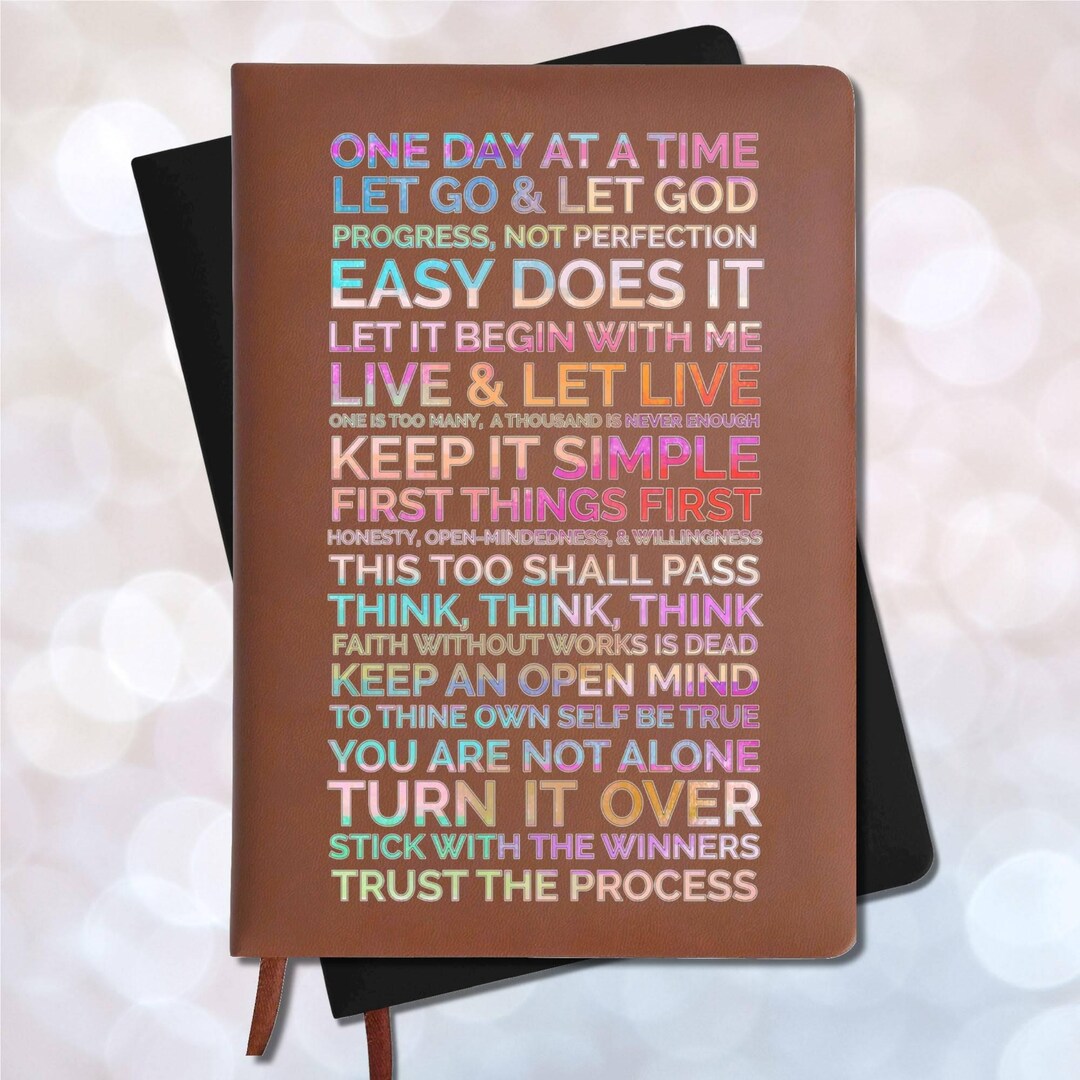 ONE DAY AT A TIME
LET GO & LET GOD
PROGRESS, NOT PERFECTION
EASY DOES IT
LET IT BEGIN WITH ME
LIVE & LET LIVE
ONE IS TOO MANY, A THOUSAND IS NEVER ENOUGH
KEEP IT SIMPLE
FIRST THINGS FIRST
HONESTY, OPEN-MINDEDNESS, & WILLINGNESS
THIS TOO SHALL PASS
THINK, THINK, THINK
FAITH WITHOUT WORKS IS DEAD
KEEP AN OPEN MIND
TO THINE OWN SELF BE TRUE
YOU ARE NOT ALONE
TURN IT OVER
STICK WITH THE WINNERS
TRUST THE PROCESS